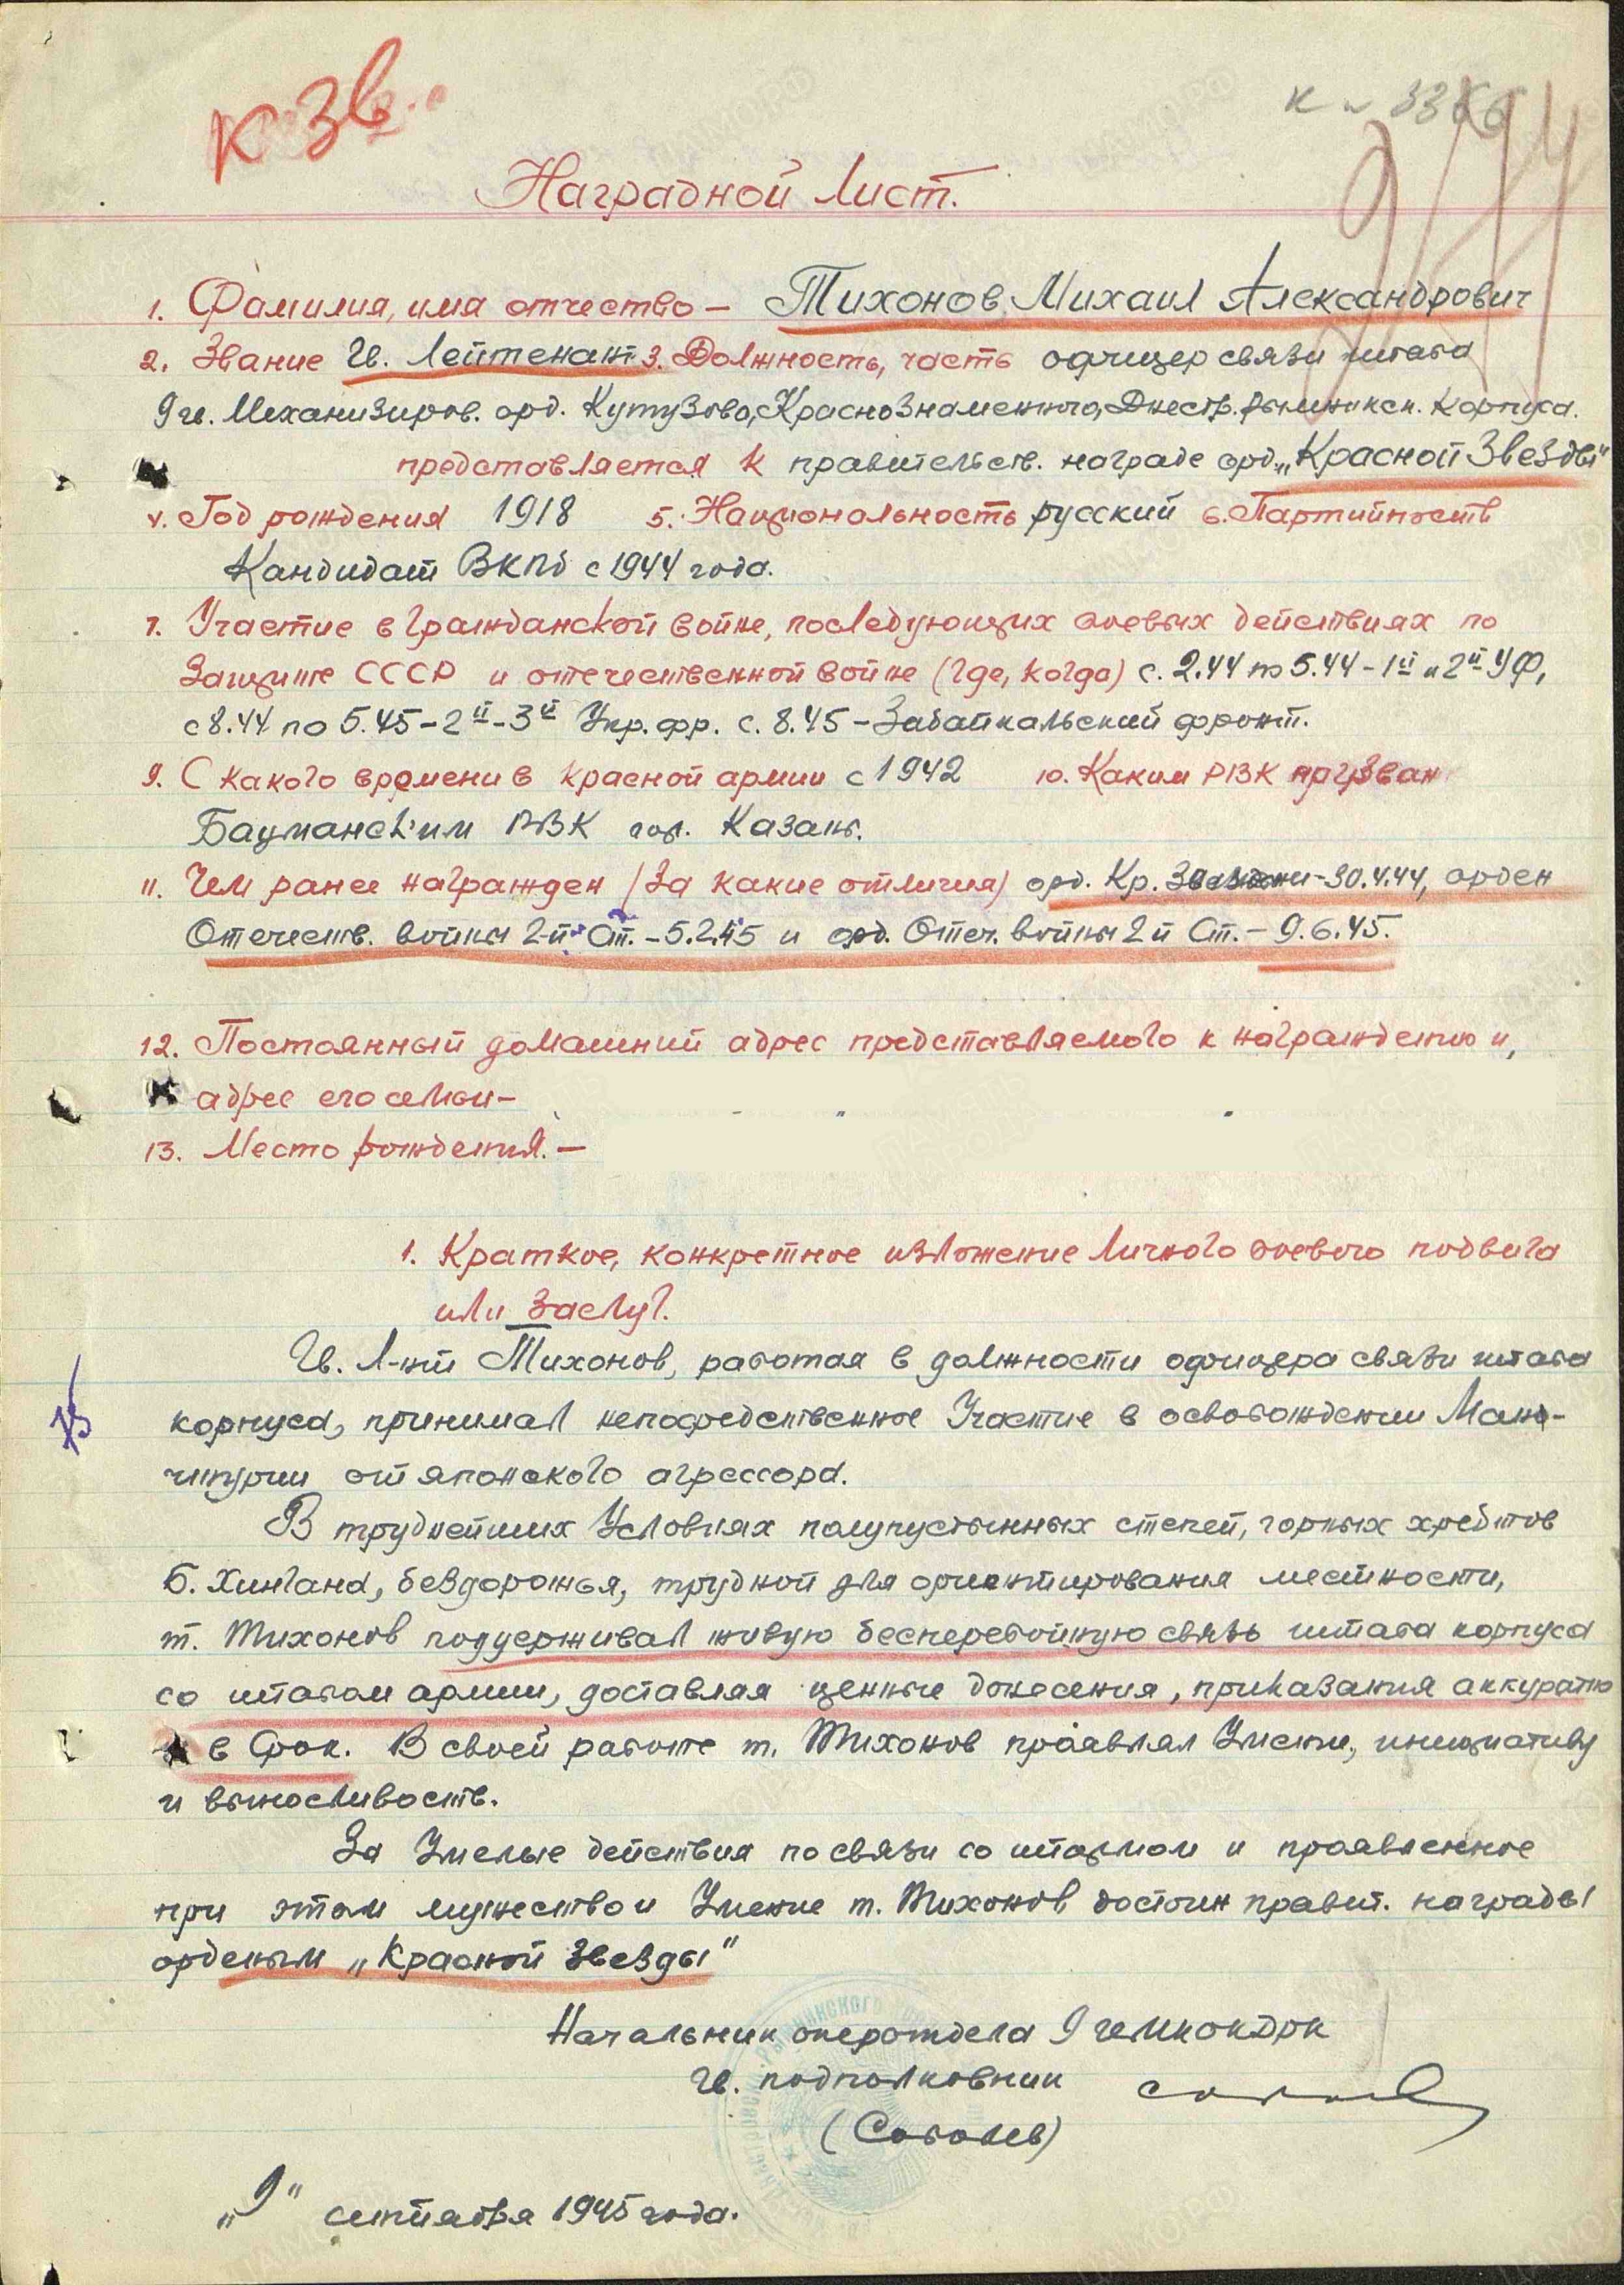 к Зв.
Наградной Лист.
1. Фамилия, имя отчество – Тихонов Михаил Александрович
2. Звание Гв. Лейтенант 3. Должность, часть офицер связи штаба
9 гв. Механизиров. орд. Кутузова, Краснознаменного, Днестр. Рымникск. Корпуса.
представляется к правительств. награде орд. „Красной Звезды"
4. Год рождения 1918 5. Национальность русский 6. Партийность
Кандидат ВКПб с 1944 года.
7. Участие в гражданской войне, последующих боевых действиях по
защите СССР и отечественной войне (где, когда) с. 2.44 по 5.44 – 1й и 2й УФ,
с 8.44 по 5.45 – 2й – 3й Укр. фр. с. 8.45 – Забайкальский фронт.
9. С какого времени в красной армии с 1942 10. Каким РВК призван
Бауманским РВК гор. Казань.
11. Чем ранее награжден (за какие отличия) орд. Кр. Звезды – 30.4.44, орден
Отечеств. войны 2-й Ст. – 5.2.45 и орд. Отеч. войны 2й Ст. – 9.6.45.
12. Постоянный домашний адрес представляемого к награждению и,
адрес его семьи –
13. Место рождения. –
1. Краткое, конкретное изложение личного боевого подвига
или заслуг.
Гв. Л-нт Тихонов, работая в должности офицера связи штаба
корпуса, принимал непосредственное Участие в освобождении Мань-
чжурии от японского агрессора.
В труднейших Условиях полупустынных степей, горных хребтов
Б. Хингана, бездорожья, трудной для ориентирования местности,
т. Тихонов поддерживал живую бесперебойную связь штаба корпуса
со штабом армии, доставляя ценные донесения, приказания аккуратно
и в Срок. В своей работе т. Тихонов проявлял Умение, инициативу
и выносливость.
За Умелые действия по связи со штабом и проявленное
при этом мужество и Умение т. Тихонов достоин правит. награды
орденом „Красной Звезды"
Начальник оперотдела 9 гвмккднк
Гв. подполковник
(Соболев)
„9" сентября 1945 года.